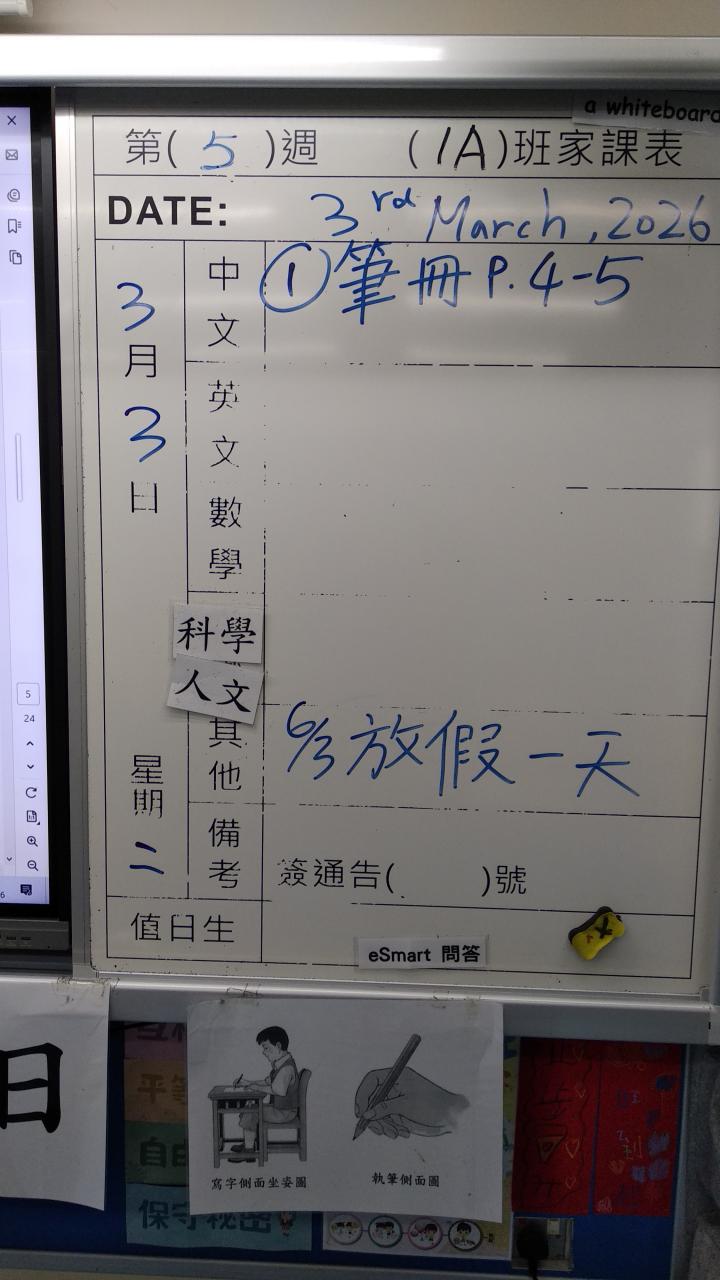 a whiteboard
第( 5 )週 (1A)班家課表
DATE: 3rd March, 2026
3月3日
星期二
中文
①筆冊P.4-5
英文
數學
科學
人文
其他
6/3放假一天
備考
簽通告( )號
值日生
eSmart 問答
5
24
日
平等
自由
保守秘密
寫字側面坐姿圖
執筆側面圖